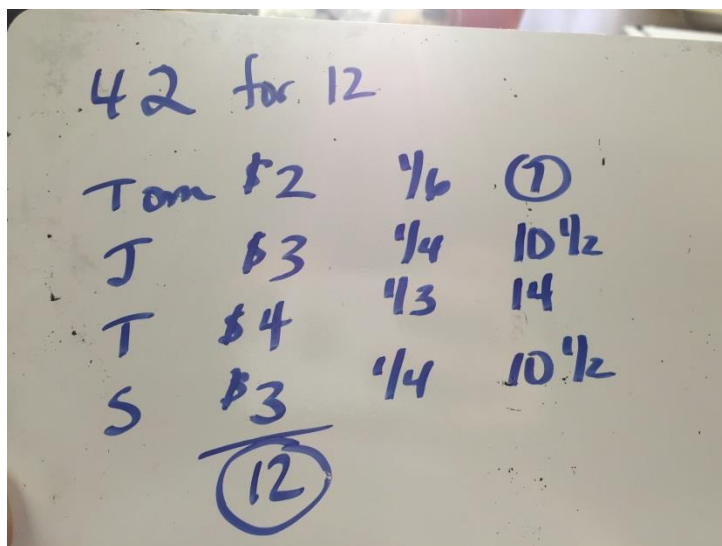 42 for 12
Tom $2 1/6 7
J $3 1/4 10 1/2
T $4 1/3 14
S $3 1/4 10 1/2
12